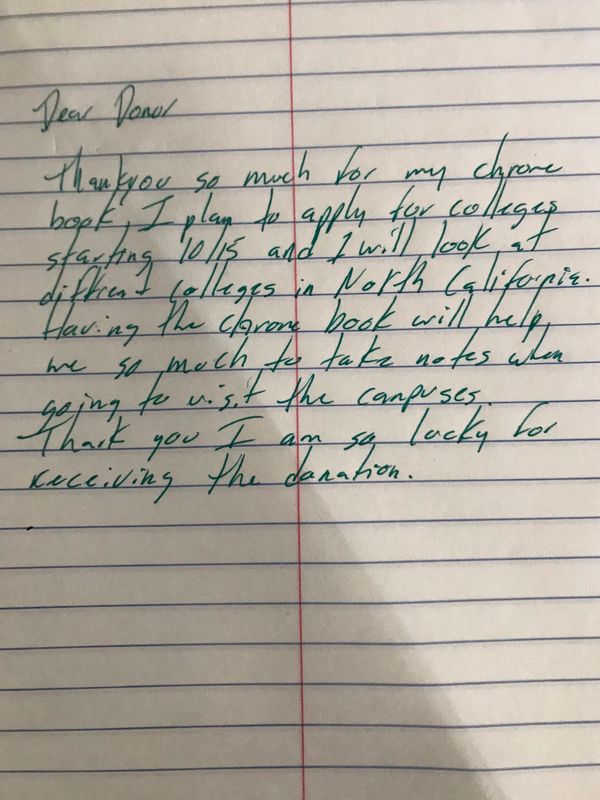 Dear Donor
Thankyou so much for my chrome
book, I plan to apply for colleges
starting 10/15 and I will look at
diffrent colleges in North California.
Having the chrome book will help
me so much to take notes when
going to visit the campuses.
Thank you I am so lucky for
receiving the danation.